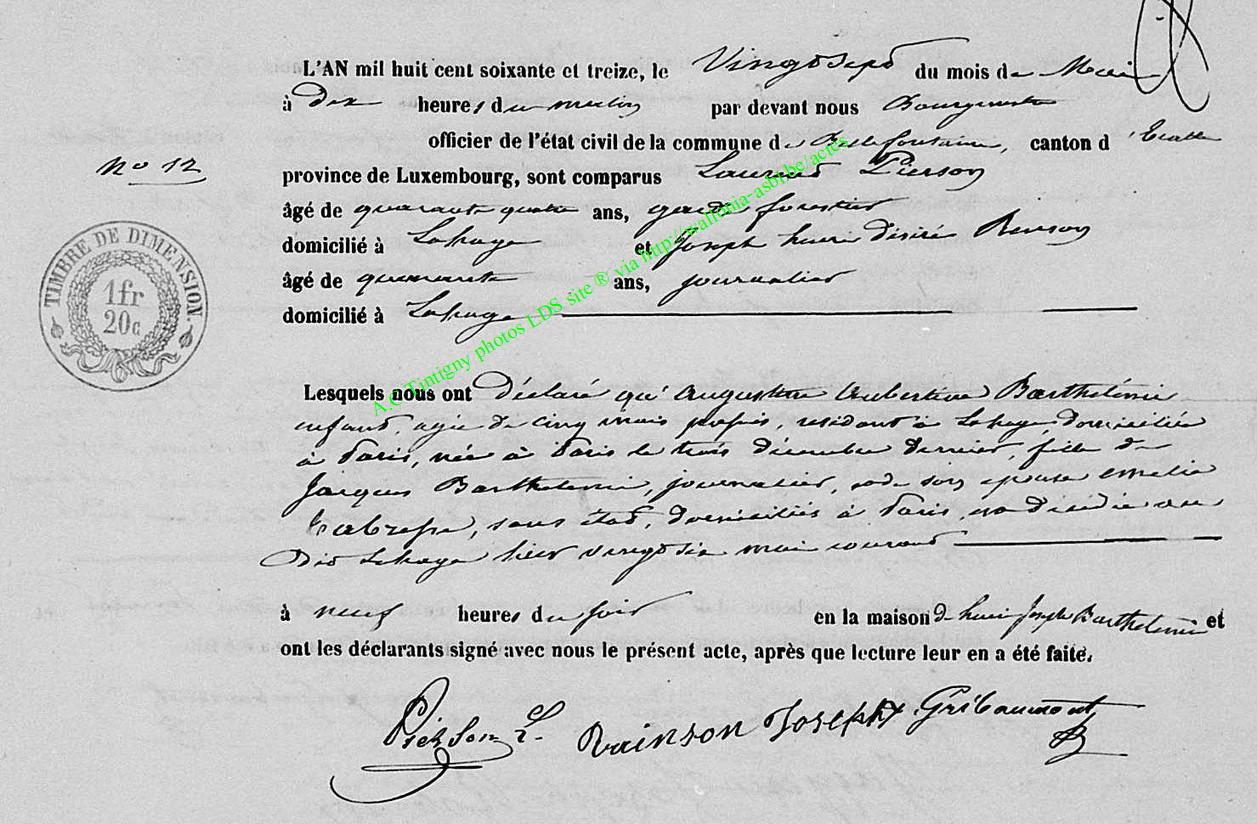 L'AN mil huit cent soixante et treize, le Vingt Sept du mois de Mai
à dix heures du matin par devant nous Bourgmestre
officier de l'état civil de la commune de Bellefontaine, canton d'Etalle
No 12
province de Luxembourg, sont comparus Laurent Pierson
âgé de quarante quatre ans, garde forestier
domicilié à Lahage et Joseph henri désiré Renson
âgé de quarante ans, journalier
domicilié à Lahage
TIMBRE DE DIMENSION
1fr
20c
A.C Tintigny photos LDS site ® via http://wallonia-asbl.be/actes
Lesquels nous ont déclaré qu'Augustine Aubertine Barthélémi
enfant, agée de cinq mois, résidant à Lahage, domiciliée
à Paris, née à Paris le trois décembre dernier, fille de
Jacques Barthelemi, journalier, et de son épouse emélie
sans état, domiciliés à Paris, est décédée au
dit Lahage hier vingt six mai courant
à neuf heures du soir en la maison de henri Joseph Barthelemi et
ont les déclarants signé avec nous le présent acte, après que lecture leur en a été faite.
Pierson L. Rainson Joseph Gribaumont